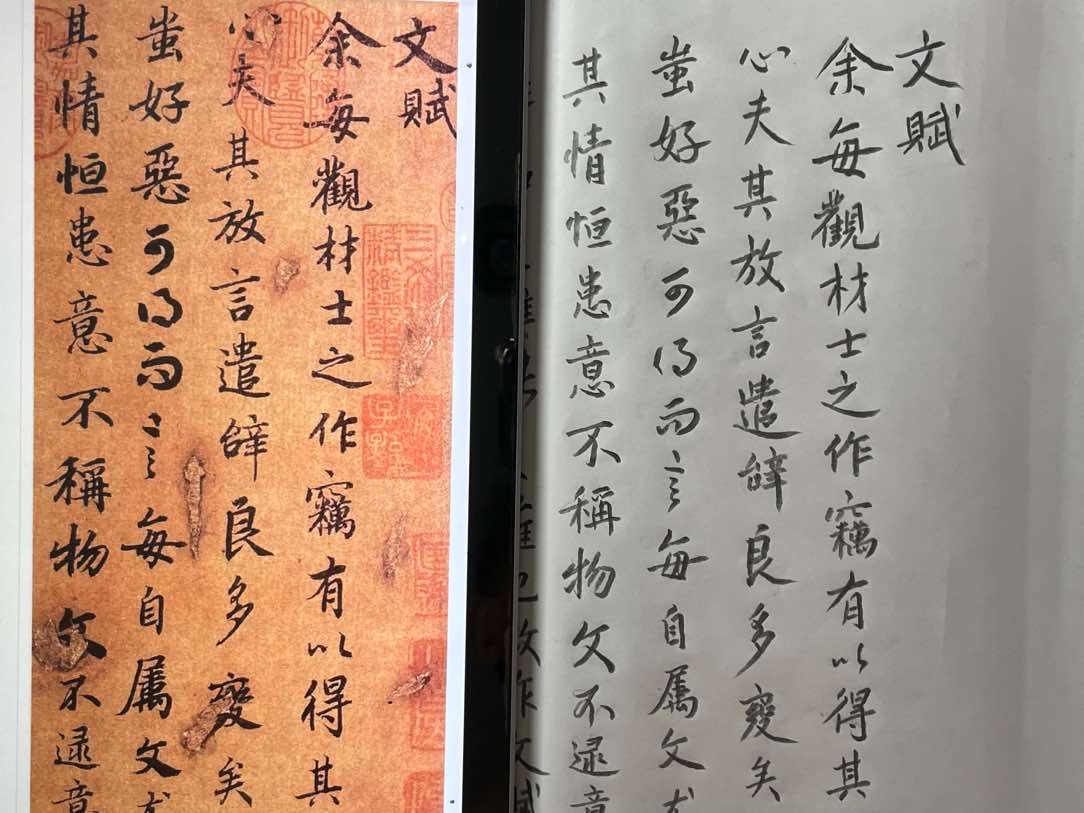 文賦
余每觀材士之作竊有以得其
心夫其放言遣辭良多變矣
蚩好惡可得而言每自屬文尤
其情恒患意不稱物文不逮意
文賦
余每觀材士之作竊有以得其
心夫其放言遣辭良多變矣
蚩好惡可得而言每自屬文尤
其情恒患意不稱物文不逮意
難也故作文賦